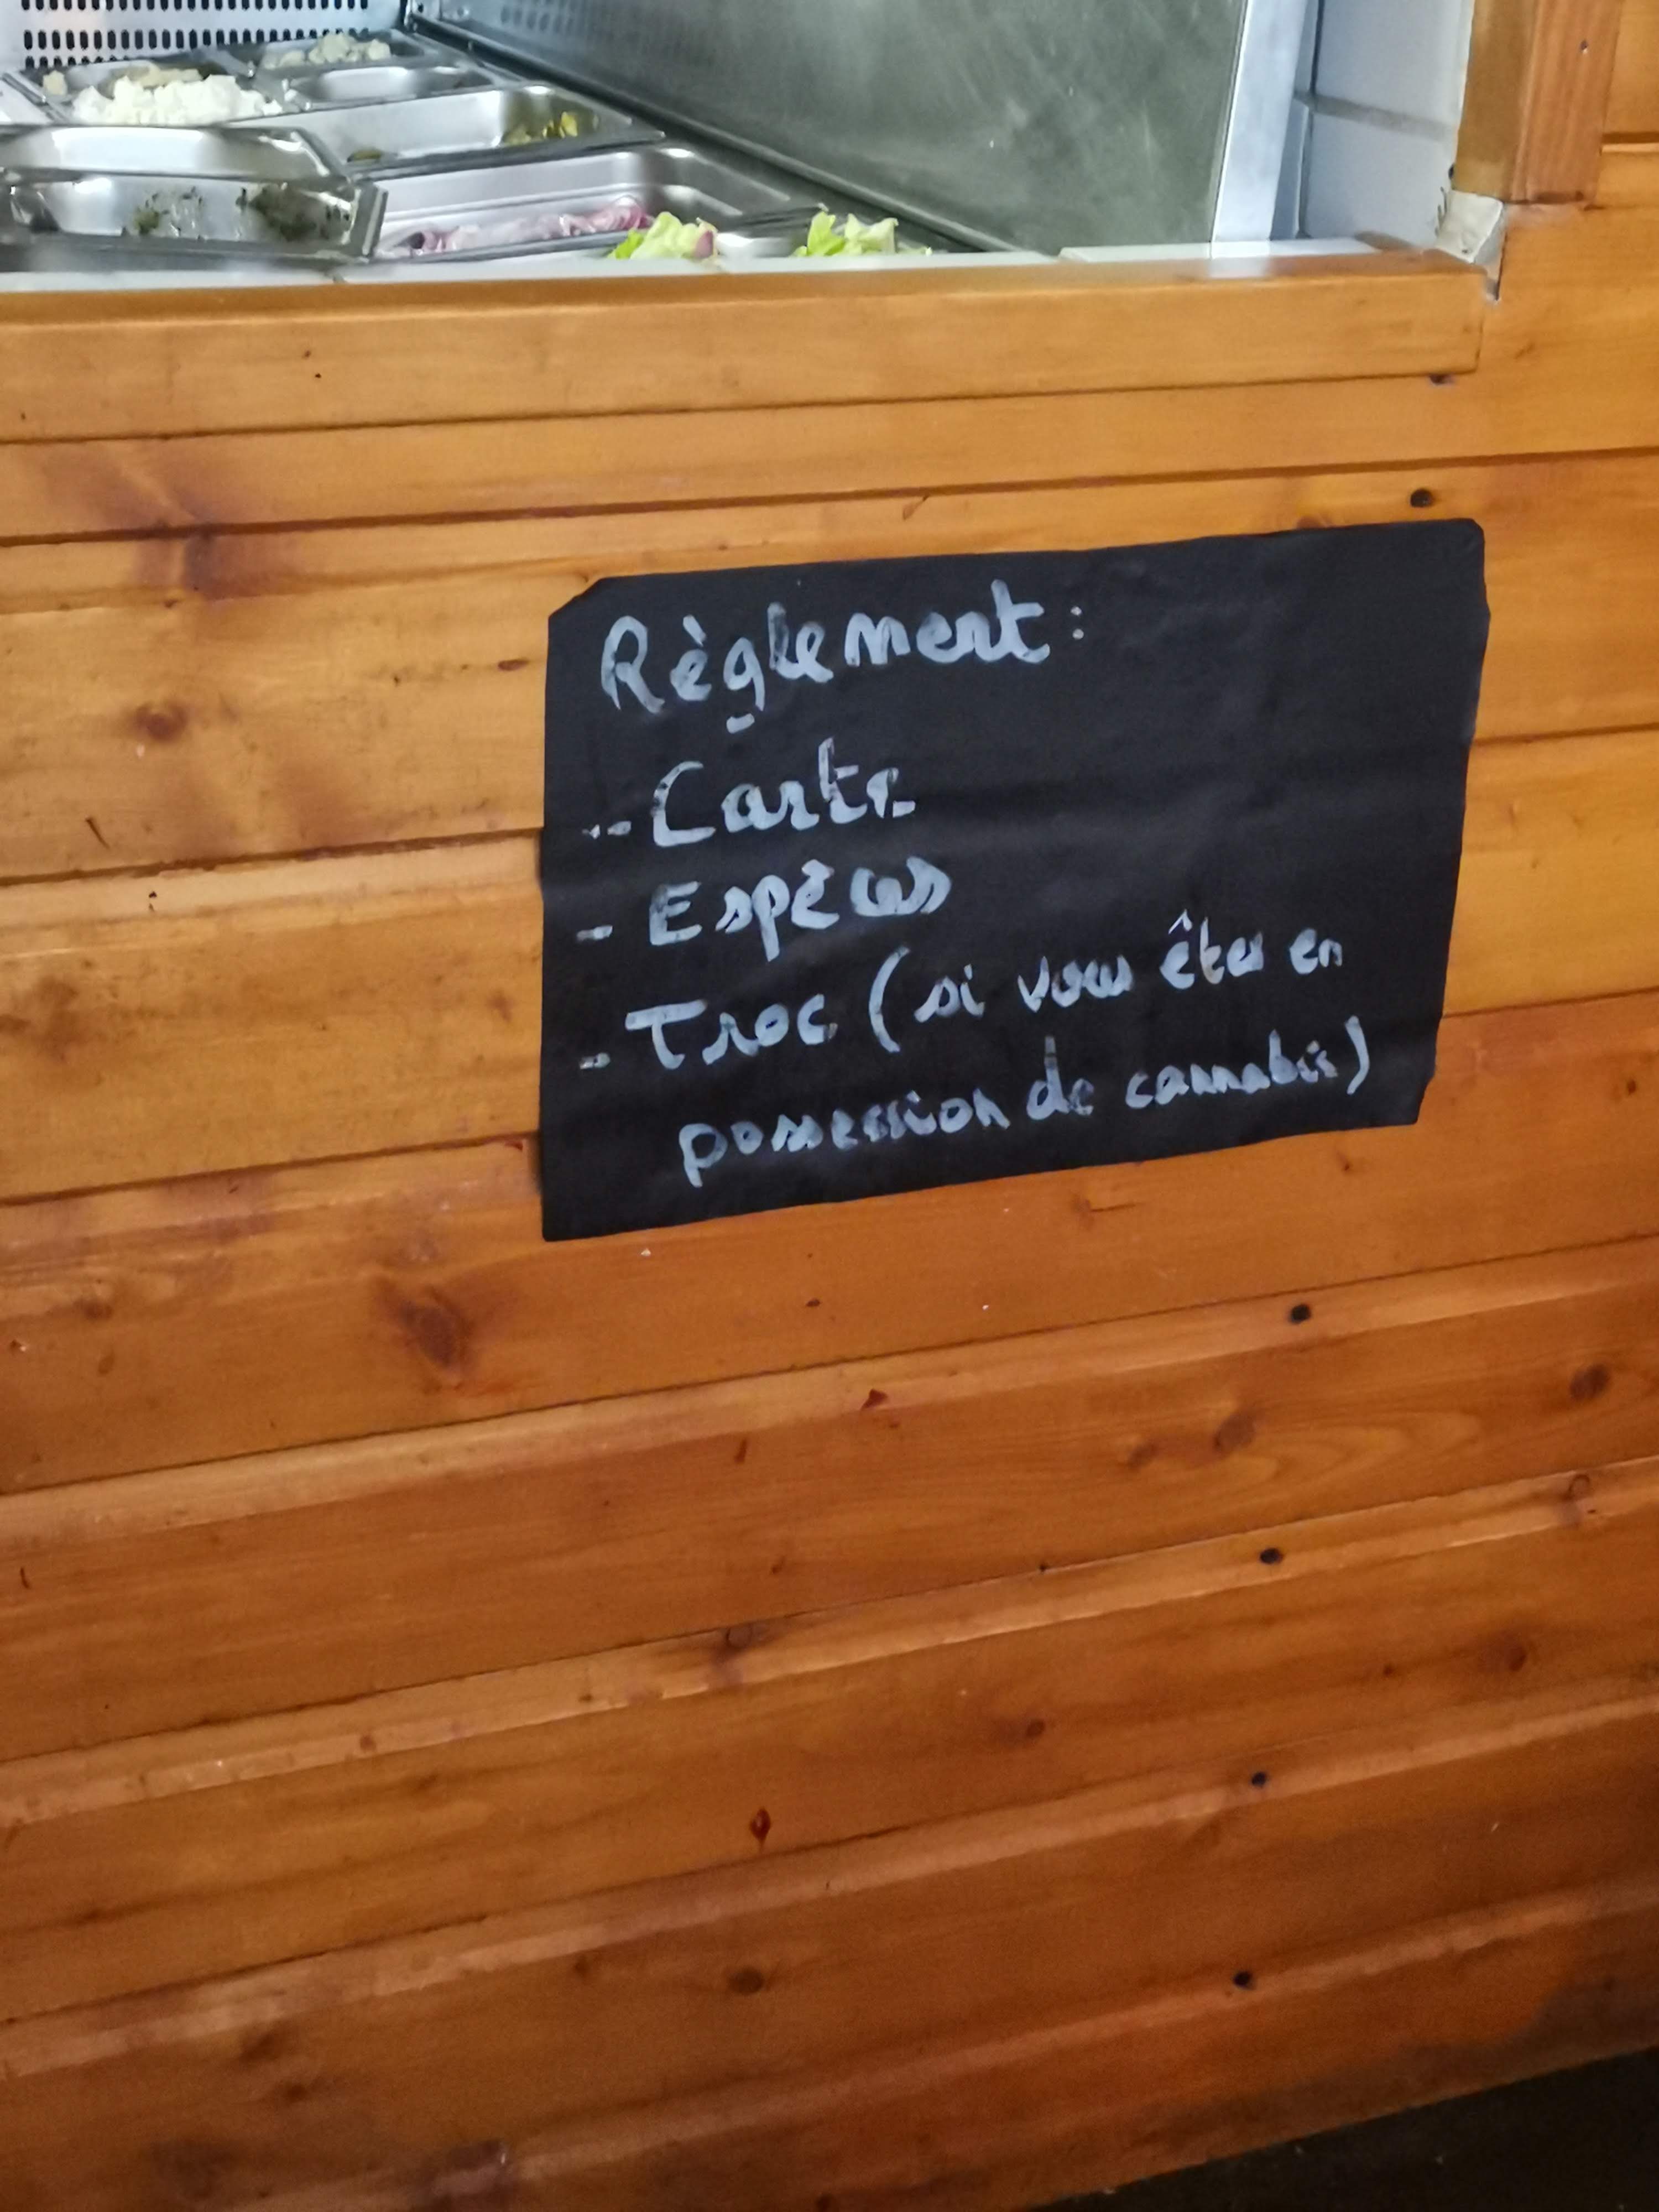 Règlement :
- Carte
- Espèces
- Troc (si vous êtes en
possession de cannabis)